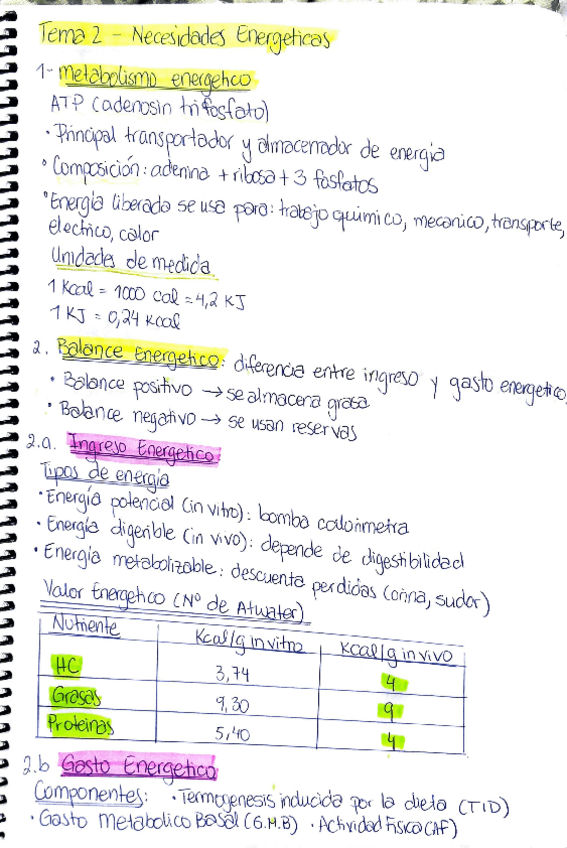 Tema 2 - Necesidades Energeticas
1- Metabolismo energetico
ATP (adenosin trifosfato)
· Principal transportador y almacenador de energia
· Composición: adenina + ribosa + 3 fosfatos
· Energía liberada se usa para: trabajo quimico, mecanico, transporte,
electrico, calor
Unidades de medida
1 Kcal = 1000 cal = 4,2 KJ
1 KJ = 0,24 Kcal
2. Balance Energetico: diferencia entre ingreso y gasto energetico.
· Balance positivo → se almacena grasa
· Balance negativo → se usan reservas
2.a. Ingreso Energetico
Tipos de energía
· Energía potencial (in vitro): bomba calorimetra
· Energía digerible (in vivo): depende de digestibilidad
· Energía metabolizable: descuenta perdidas (orina, sudor)
Valor Energetico (Nº de Atwater)
Nutriente Kcal/g in vitro Kcal/g in vivo
HC 3,74 4
Grasas 9,30 9
Proteinas 5,40 4
2.b Gasto Energetico
Componentes: · Termogenesis inducida por la dieta (TID)
· Gasto Metabolico Basal (G.M.B) · Actividad Fisica (AF)